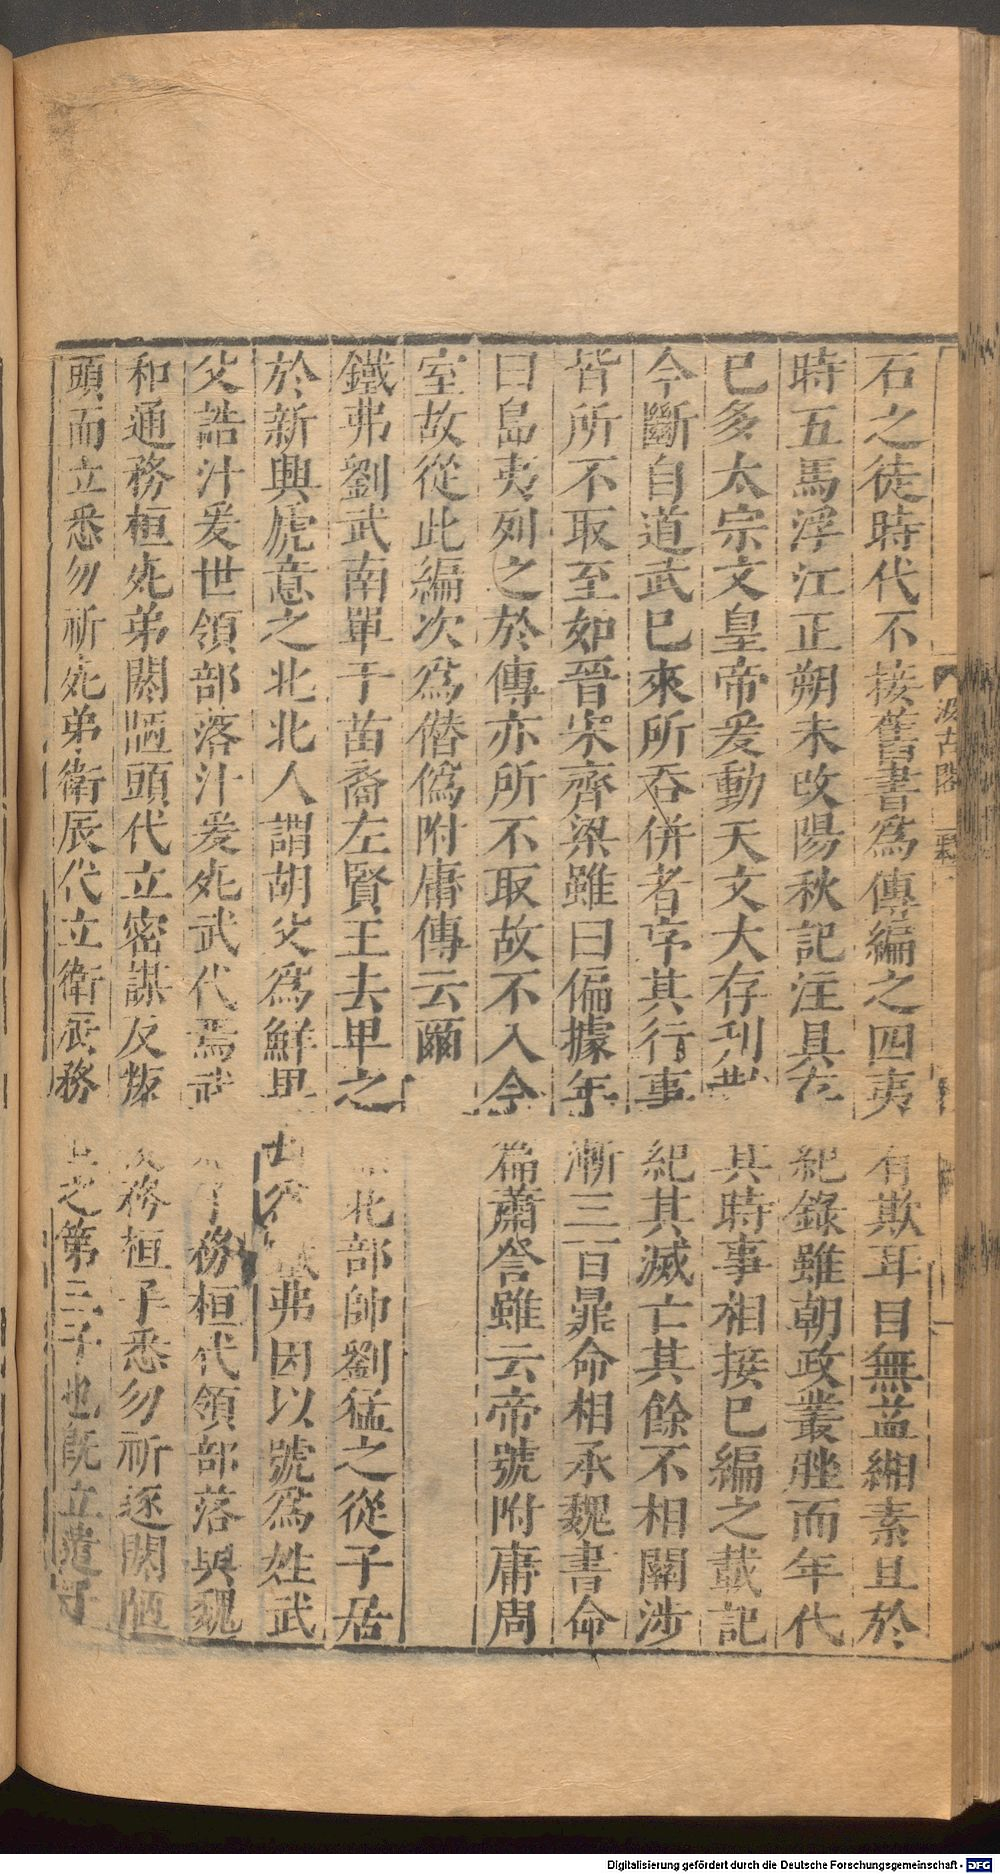 石之徒時代不接舊書爲傳編之四夷有欺耳目無益緗素且於
時五馬浮江正朔未改陽秋記注具存紀錄雖朝政叢脞而年代
已多太宗文皇帝爰動天文大存刊勒其時事相接已編之載記
今斷自道武已來所吞併者序其行事紀其滅亡其餘不相關涉
皆所不取至如晉宋齊梁雖曰偏據年漸三百鼎命相承魏書命
曰島夷列之於傳亦所不取故不入今篇蕭詧雖云帝號附庸周
室故從此編次爲僭僞附庸傳云爾
鐵弗劉武南單于苗裔左賢王去卑之北部帥劉猛之從子居
於新興虎意之北北人謂胡父爲鮮卑弗因以號爲姓武
父誥汁爰世領部落汁爰死武代焉武務桓代領部落與魏
和通務桓死弟閼陋頭代立密謀反叛務桓子悉勿祈逐閼陋
頭而立悉勿祈死弟衛辰代立衛辰務之第三子也既立遣子
汲古閣
Digitalisierung gefördert durch die Deutsche Forschungsgemeinschaft - DFG